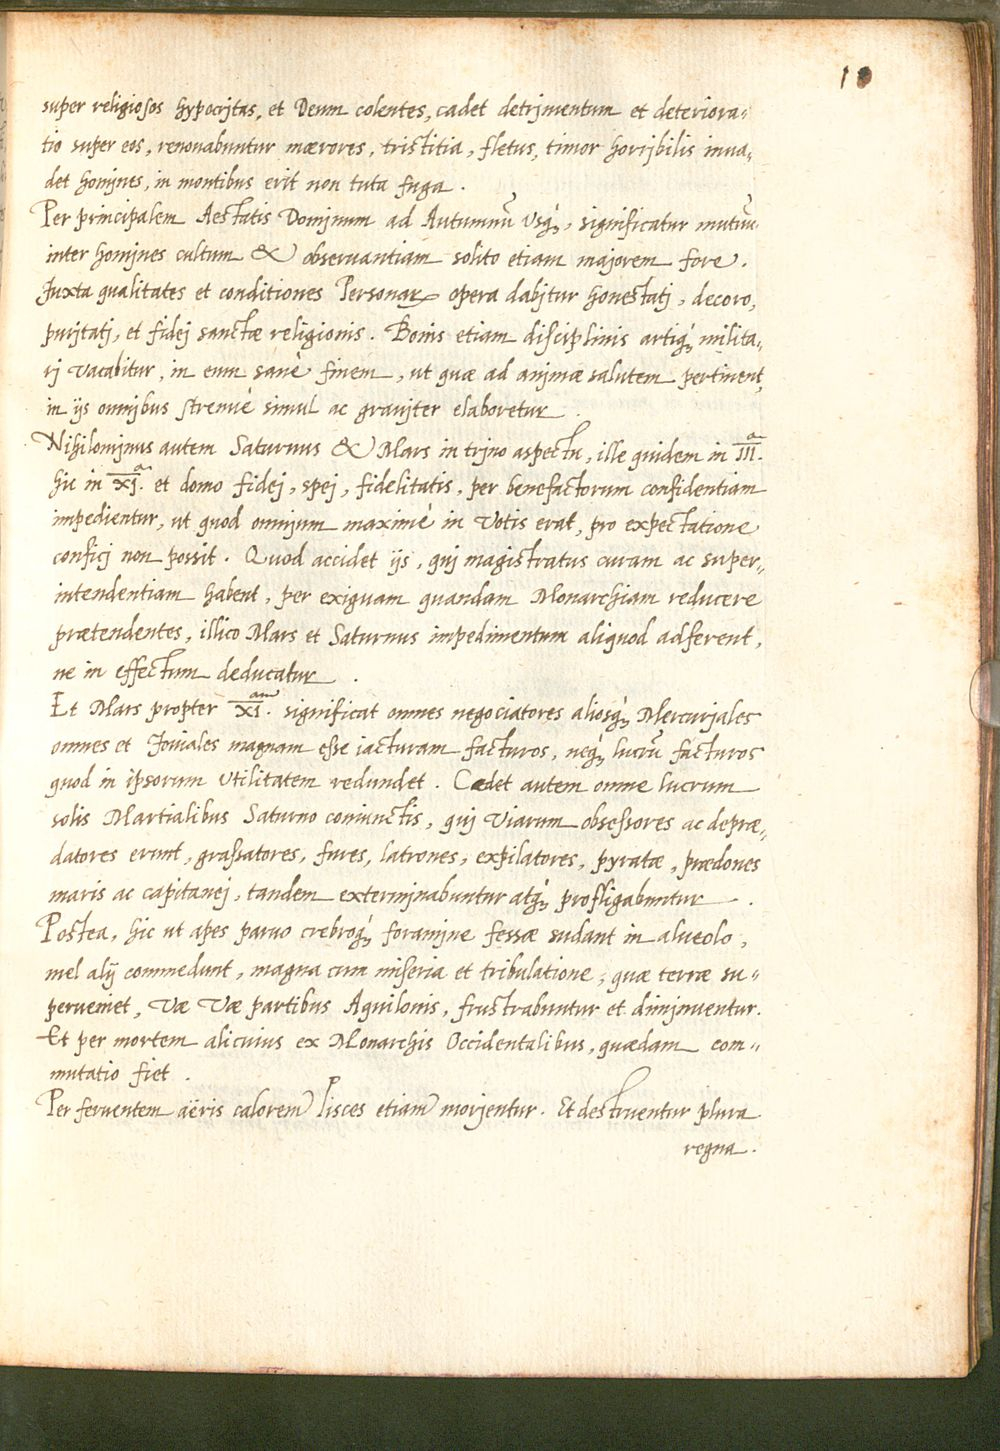 18
super religiosos hypocrjtas, et Deum colentes, cadet detrjmentum et deteriora-
tio super eos, renouabuntur mærores, tristitia, fletus, timor horrjbilis inua-
det homjnes, in montibus erit non tuta fuga.
Per principalem Aestatis Domjnum ad Autumnū Vsq́;, significatur mutuū
inter homjnes cultum & obseruantiam solito etiam majorem fore.
Juxta qualitates et conditiones Personarꝝ opera dabjtur honestatj, decoro,
purjtatj, et fidej sanctæ religionis. Bonis etiam disciplinis artiq́; milita-
rj vacabitur, in eum sanè finem, ut quæ ad animæ salutem pertinent,
in ijs omnibus strenuè simul ac grauiter elaboretur.
Nihilomjnus autem Saturnus & Mars in trjno aspectu, ille quidem in III.ª
hic in XI.ª et domo fidej, spej, fidelitatis, per benefactorum confidentiam
impedientur, ut quod omnjum maximè in Votis erat, pro expectatione
conficj non possit. Quod accidet ijs, quj magistratus curam ac super-
intendentiam habent, per exiguam quandam Monarchiam reducere
prætendentes, illico Mars et Saturnus impedimentum aliquod adferent,
ne in effectum deducatur.
Et Mars propter XI.am significat omnes negociatores aliosq́; Mercurjales
omnes et Jouiales magnam esse iacturam facturos, neq́; lucrū facturos
quod in ipsorum Vtilitatem redundet. Cedet autem omne lucrum
solis Martialibus Saturno coniunctis, quj Viarum obsessores ac depræ-
datores erunt, grassatores, fures, latrones, expilatores, pyratæ, prædones
maris ac capitanej, tandem extermjnabuntur atq́; profligabuntur.
Postea, hic ut apes paruo crebroq́; foramjne fessæ sudant in alueolo,
mel alij commedunt, magna cum miseria et tribulatione, quæ terræ su-
perueniet, Væ Væ partibus Aquilonis, frustrabuntur et dimjnuentur.
Et per mortem alicuius ex Monarchis Occidentalibus, quædam com-
mutatio fiet.
Per feruentem aëris calorem Pisces etiam morjentur. Et destruentur plura
regna.